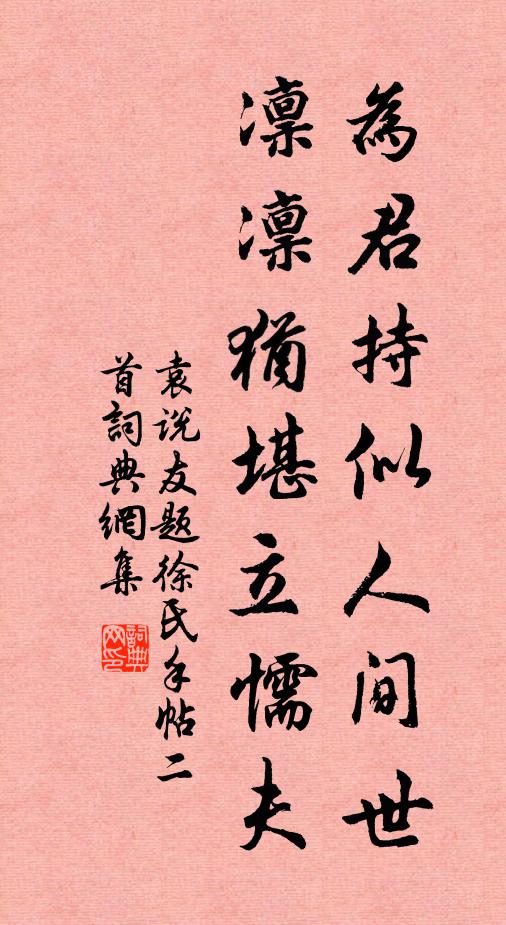 為君持似人間世
凛凛猶堪立懦夫
袁说友题徐氏手帖二
首詞典網集
詞典网印